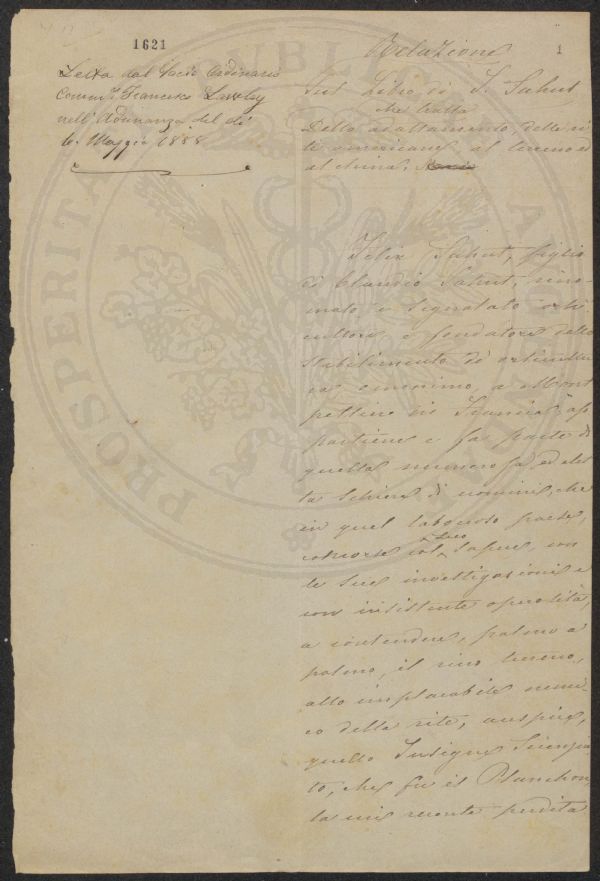 1621
1
Letta dal Socio Ordinario
Comm.e Francesco Lawley
nell'Adunanza del dì
6. Maggio 1888
Relazione
sul Libro di F. Sahut
che tratta
Dello adattamento, delle vi
ti americane, al terreno ed
al clima.
Felix Sahut, figlio
di Claudio Sahut, rino-
mato e segnalato orti
cultore e fondatore dello
stabilimento di orticultu
ra omonimo, a Mont
pellier in Francia ap
partiene e fa parte di
quella numerosa, ed elet
ta schiera di uomini, che
in quel laborioso paese,
concorse col suo sapere, con
le sue investigazioni e
con insistente operosità,
a contendere, palmo a
palmo, il suo terreno,
allo implacabile nemi-
co della vite, auspice,
quello Insigne Scienzia
to, che fu il Planchon,
la cui recente perdita
PROSPERITA
PUBLICA